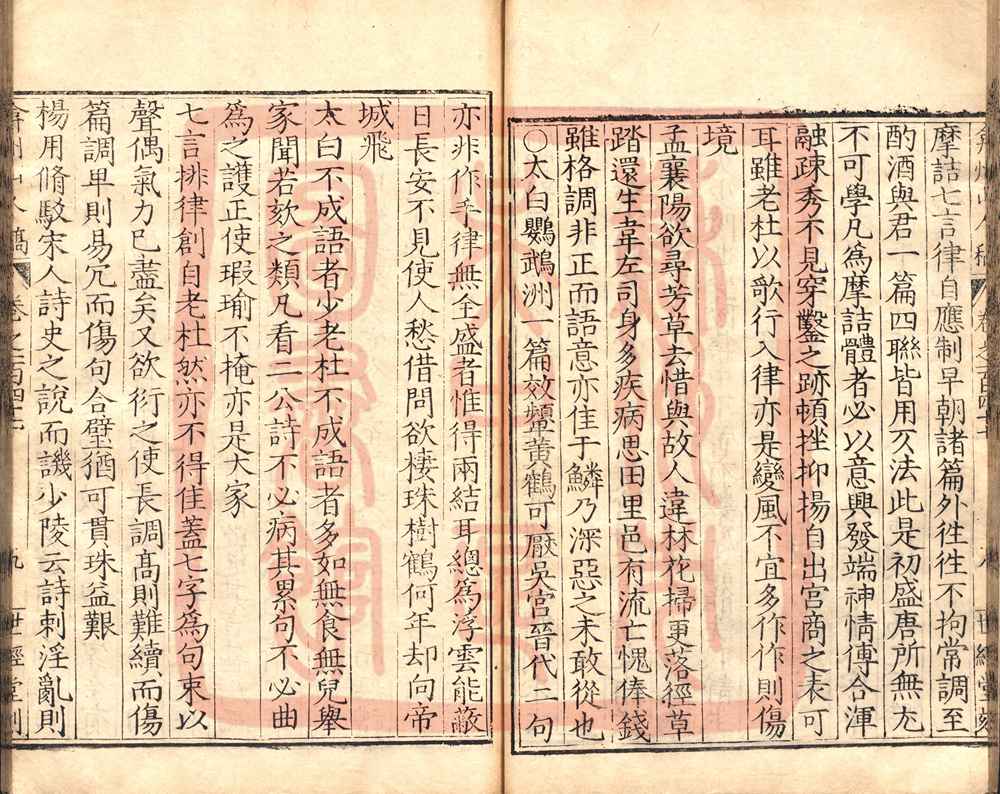 弇州山人稿 卷之一百四十七 八 世經堂刻
摩詰七言律自應制早朝諸篇外往往不拘常調至
酌酒與君一篇四聯皆用仄法此是初盛唐所無尤
不可學凡為摩詰體者必以意興發端神情傅合渾
融疎秀不見穿鑿之跡頓挫抑揚自出宮商之表可
耳雖老杜以歌行入律亦是變風不宜多作作則傷
境
孟襄陽欲尋芳草去惜與故人違林花掃更落徑草
踏還生韋左司身多疾病思田里邑有流亡愧俸錢
雖格調非正而語意亦佳于鱗乃深惡之未敢從也
○太白鸚鵡洲一篇效顰黃鶴可厭吳宮晉代二句
亦非作手律無全盛者惟得兩結耳總為浮雲能蔽
日長安不見使人愁借問欲棲珠樹鶴何年却向帝
城飛
太白不成語者少老杜不成語者多如無食無兒舉
家聞若欬之類凡看二公詩不必病其累句不必曲
為之護正使瑕瑜不掩亦是大家
七言排律創自老杜然亦不得佳蓋七字為句束以
聲偶氣力已盡矣又欲衍之使長調高則難續而傷
篇調卑則易冗而傷句合璧猶可貫珠益艱
楊用脩駁宋人詩史之說而譏少陵云詩刺淫亂則
弇州山人稿 卷之一百四十七 九 世經堂刻